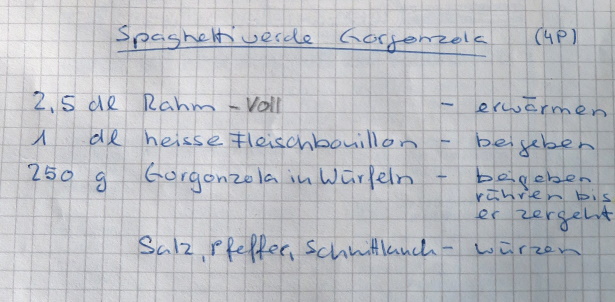 Spaghetti verde Gorgonzola (4P)
2,5 dl Rahm - Voll - erwärmen
1 dl heisse Fleischbouillon - beigeben
250 g Gorgonzola in Würfeln - beigeben
rühren bis
er zergeht
Salz, Pfeffer, Schnittlauch - würzen